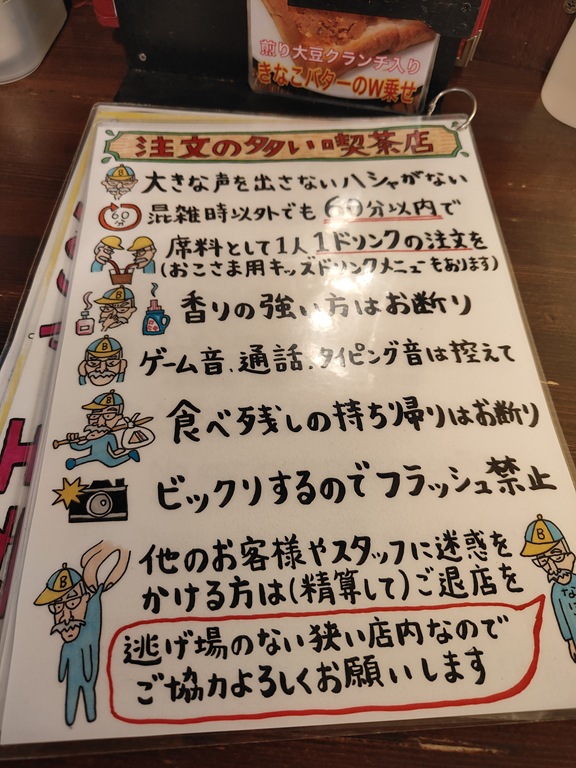 煎り大豆クランチ入り
きなこバターのW乗せ
注文の多い喫茶店
大きな声を出さないハシャがない
60分
混雑時以外でも60分以内で
席料として1人1ドリンクの注文を
(おこさま用キッズドリンクメニューもあります)
香りの強い方はお断り
ゲーム音、通話、タイピング音は控えて
食べ残しの持ち帰りはお断り
ビックリするのでフラッシュ禁止
他のお客様やスタッフに迷惑を
かける方は(精算して)ご退店を
逃げ場のない狭い店内なので
ご協力よろしくお願いします